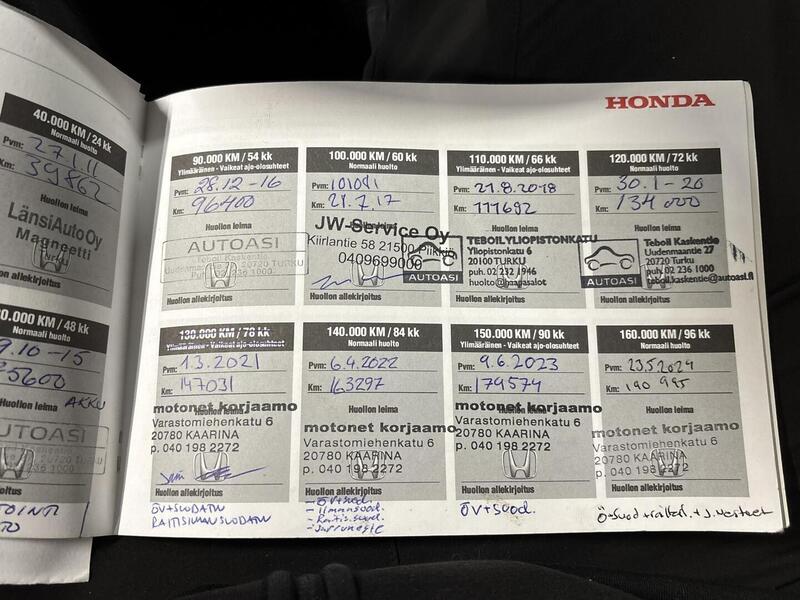 HONDA
40.000 KM / 24 kk
Normaali huolto
Pvm: 27.1.11
Km: 39862
Huollon leima
LänsiAuto Oy
Magneetti
Turku
Huollon allekirjoitus
90.000 KM / 54 kk
Ylimääräinen - Vaikeat ajo-olosuhteet
Pvm: 28.12-16
Km: 96400
Huollon leima
AUTOASI
Teboil Kaskentie
Uudenmaantie 20720 TURKU
236 1000
Huollon allekirjoitus
100.000 KM / 60 kk
Normaali huolto
Pvm: 101081
Km: 21.7.17
Huollon leima
JW-Service Oy
Kiirlantie 58 21500 Piikkiö
0409699000
Huollon allekirjoitus
110.000 KM / 66 kk
Ylimääräinen - Vaikeat ajo-olosuhteet
Pvm: 21.8.2018
Km: 111692
Huollon leima
AUTOASI
TEBOIL YLIOPISTONKATU
Yliopistonkatu 6
20100 TURKU
puh. 02 232 1946
Huollon allekirjoitus
120.000 KM / 72 kk
Normaali huolto
Pvm: 30.1-20
Km: 134000
Huollon leima
AUTOASI
Teboil Kaskentie
Uudenmaantie 27
20720 Turku
puh. 02 236 1000
teboil.kaskentie@autoasi.fi
Huollon allekirjoitus
/ 48 kk
huolto
9.10-15
5600
Huollon leima
AKKU
AUTOASI
20720 TURKU
236 1000
allekirjoitus
130.000 KM / 78 kk
Ylimääräinen - Vaikeat ajo-olosuhteet
Pvm: 1.3.2021
Km: 147031
Huollon leima
motonet korjaamo
Varastomiehenkatu 6
20780 KAARINA
p. 040 198 2272
Huollon allekirjoitus
ÖV+SUODATIN
RAITISILMANSUODATIN
140.000 KM / 84 kk
Normaali huolto
Pvm: 6.4.2022
Km: 163297
Huollon leima
motonet korjaamo
Varastomiehenkatu 6
20780 KAARINA
p. 040 198 2272
Huollon allekirjoitus
- ÖV+suod.
- Ilmansuod.
- Raitis.suod.
- Jarruneste
150.000 KM / 90 kk
Ylimääräinen - Vaikeat ajo-olosuhteet
Pvm: 9.6.2023
Km: 179574
Huollon leima
motonet korjaamo
Varastomiehenkatu 6
20780 KAARINA
p. 040 198 2272
Huollon allekirjoitus
ÖV+suod.
160.000 KM / 96 kk
Normaali huolto
Pvm: 23.5.2024
Km: 190 995
Huollon leima
motonet korjaamo
Varastomiehenkatu 6
20780 KAARINA
p. 040 198 2272
Huollon allekirjoitus